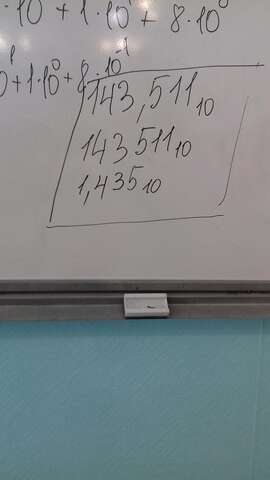 ·10 + 1·10⁰ + 8·10⁰
0¹+1·10⁰+8·10⁻¹
143,511₁₀
143511₁₀
1,435₁₀